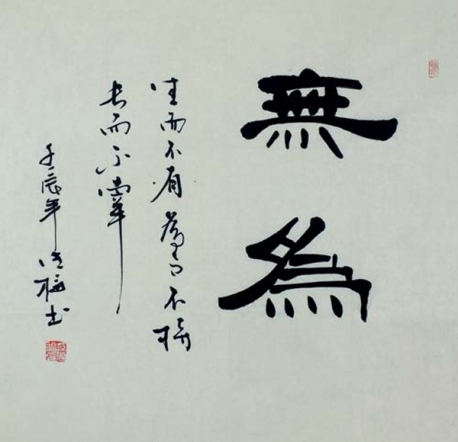 無為
生而不有為而不恃
长而不宰
壬辰年书